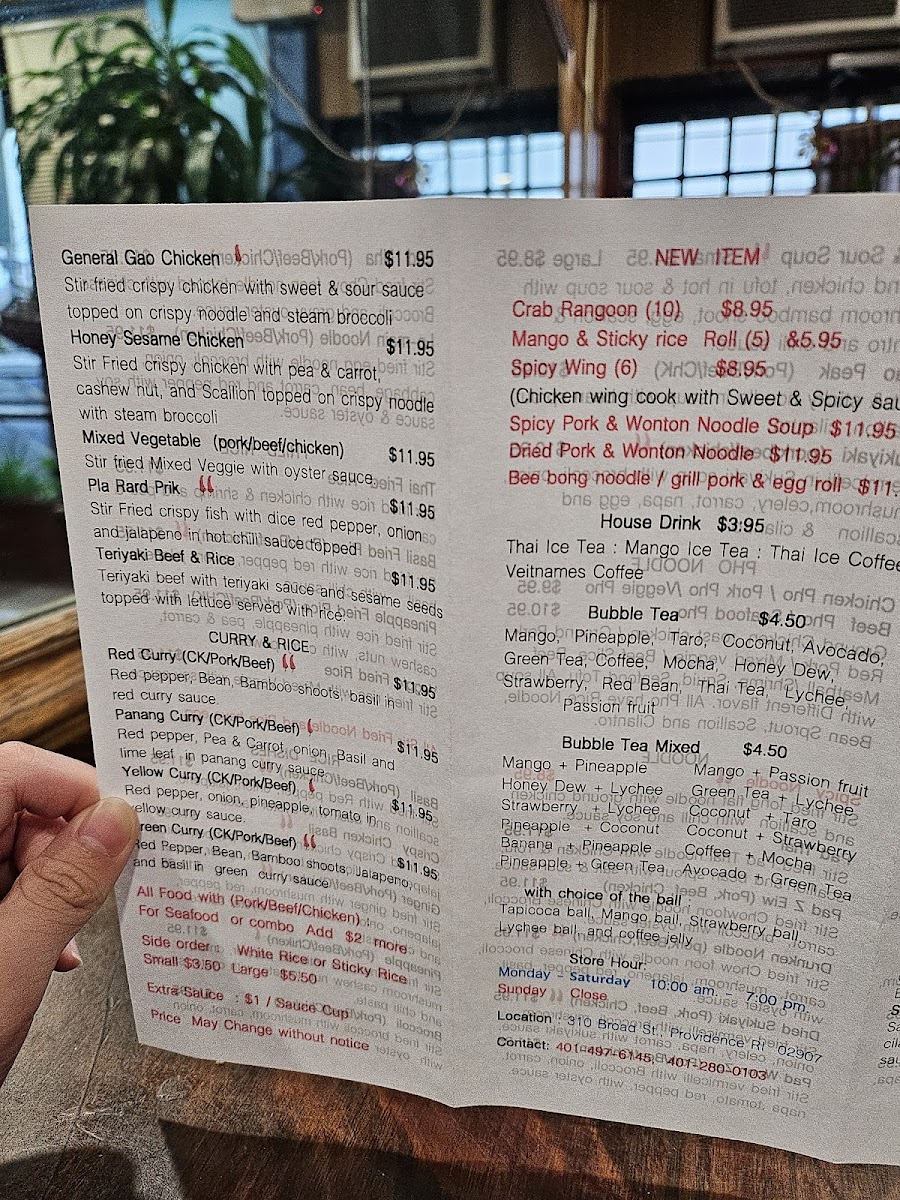 General Gao Chicken $11.95
Stir fried crispy chicken with sweet & sour sauce
topped on crispy noodle and steam broccoli
Honey Sesame Chicken $11.95
Stir Fried crispy chicken with pea & carrot,
cashew nut, and Scallion topped on crispy noodle
with steam broccoli
Mixed Vegetable (pork/beef/chicken) $11.95
Stir fried Mixed Veggie with oyster sauce
Pla Rard Prik $11.95
Stir Fried crispy fish with dice red pepper, onion
and jalapeno in hot chili sauce topped
Teriyaki Beef & Rice $11.95
Teriyaki beef with teriyaki sauce and sesame seeds
topped with lettuce served with rice.
CURRY & RICE
Red Curry (CK/Pork/Beef) $11.95
Red pepper, Bean, Bamboo shoots, basil in
red curry sauce
Panang Curry (CK/Pork/Beef) $11.95
Red pepper, Pea & Carrot, onion, Basil and
lime leaf in panang curry sauce
Yellow Curry (CK/Pork/Beef) $11.95
Red pepper, onion, pineapple, tomato in
yellow curry sauce.
Green Curry (CK/Pork/Beef) $11.95
Red Pepper, Bean, Bamboo shoots, Jalapeno,
and basil in green curry sauce
All Food with (Pork/Beef/Chicken)
For Seafood or combo Add $2 more
Side order : White Rice or Sticky Rice
Small $3.50 Large $5.50
Extra Sauce : $1 / Sauce Cup
Price May Change without notice
NEW ITEM
Crab Rangoon (10) $8.95
Mango & Sticky rice Roll (5) &5.95
Spicy Wing (6) $8.95
(Chicken wing cook with Sweet & Spicy sau
Spicy Pork & Wonton Noodle Soup $11.95
Dried Pork & Wonton Noodle $11.95
Bee bong noodle / grill pork & egg roll $11.
House Drink $3:95
Thai Ice Tea : Mango Ice Tea : Thai Ice Coffee
Veitnames Coffee
Bubble Tea $4.50
Mango, Pineapple, Taro, Coconut, Avocado,
Green Tea, Coffee, Mocha, Honey Dew,
Strawberry, Red Bean, Thai Tea, Lychee,
Passion fruit
Bubble Tea Mixed $4.50
Mango + Pineapple Mango + Passion fruit
Honey Dew + Lychee Green Tea + Lychee
Strawberry + Lychee Coconut + Taro
Pineapple + Coconut Coconut + Strawberry
Banana + Pineapple Coffee + Mocha
Pineapple + Green Tea Avocado + Green Tea
with choice of the ball :
Tapicoca ball, Mango ball, Strawberry ball,
Lychee ball, and coffee jelly
Store Hour:
Monday - Saturday 10:00 am. - 7:00 pm.
Sunday : Close
Location : 310 Broad St., Providence RI 02907
Contact: 401-497-6145, 401-280-0103